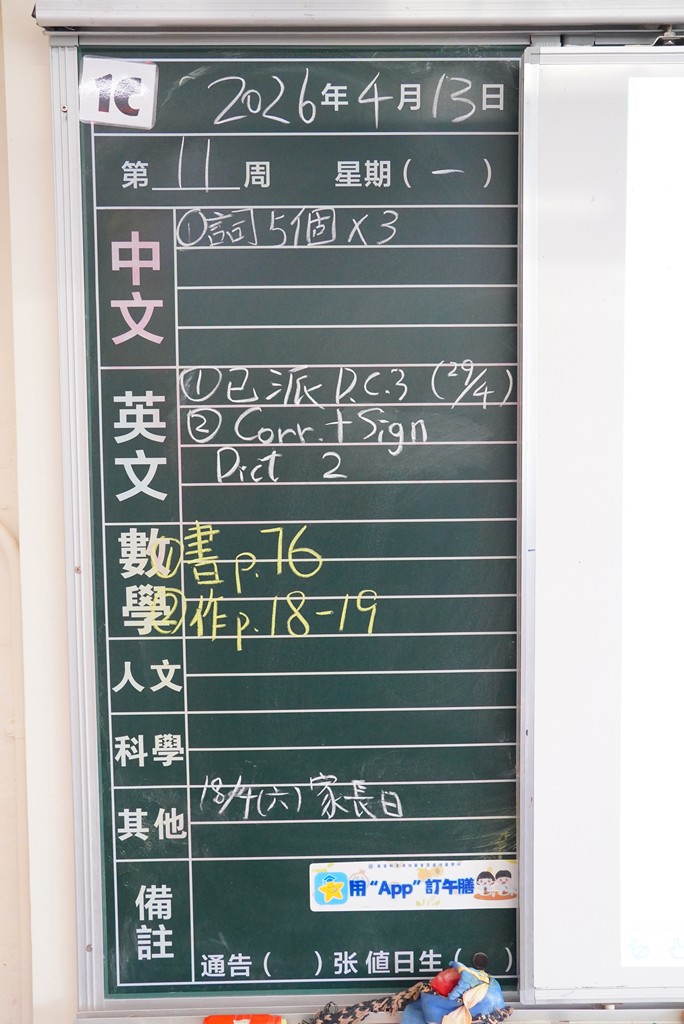 1C
2026年4月13日
第11周 星期(一)
中文
①詞5個 x 3
英文
①已派 D.C.3 (29/4)
② Corr. + Sign
Dict 2
數學
①書 p.76
②作 p.18-19
人文
科學
其他
18/4(六) 家長日
備註
用“App”訂午膳
通告( )张 值日生( )